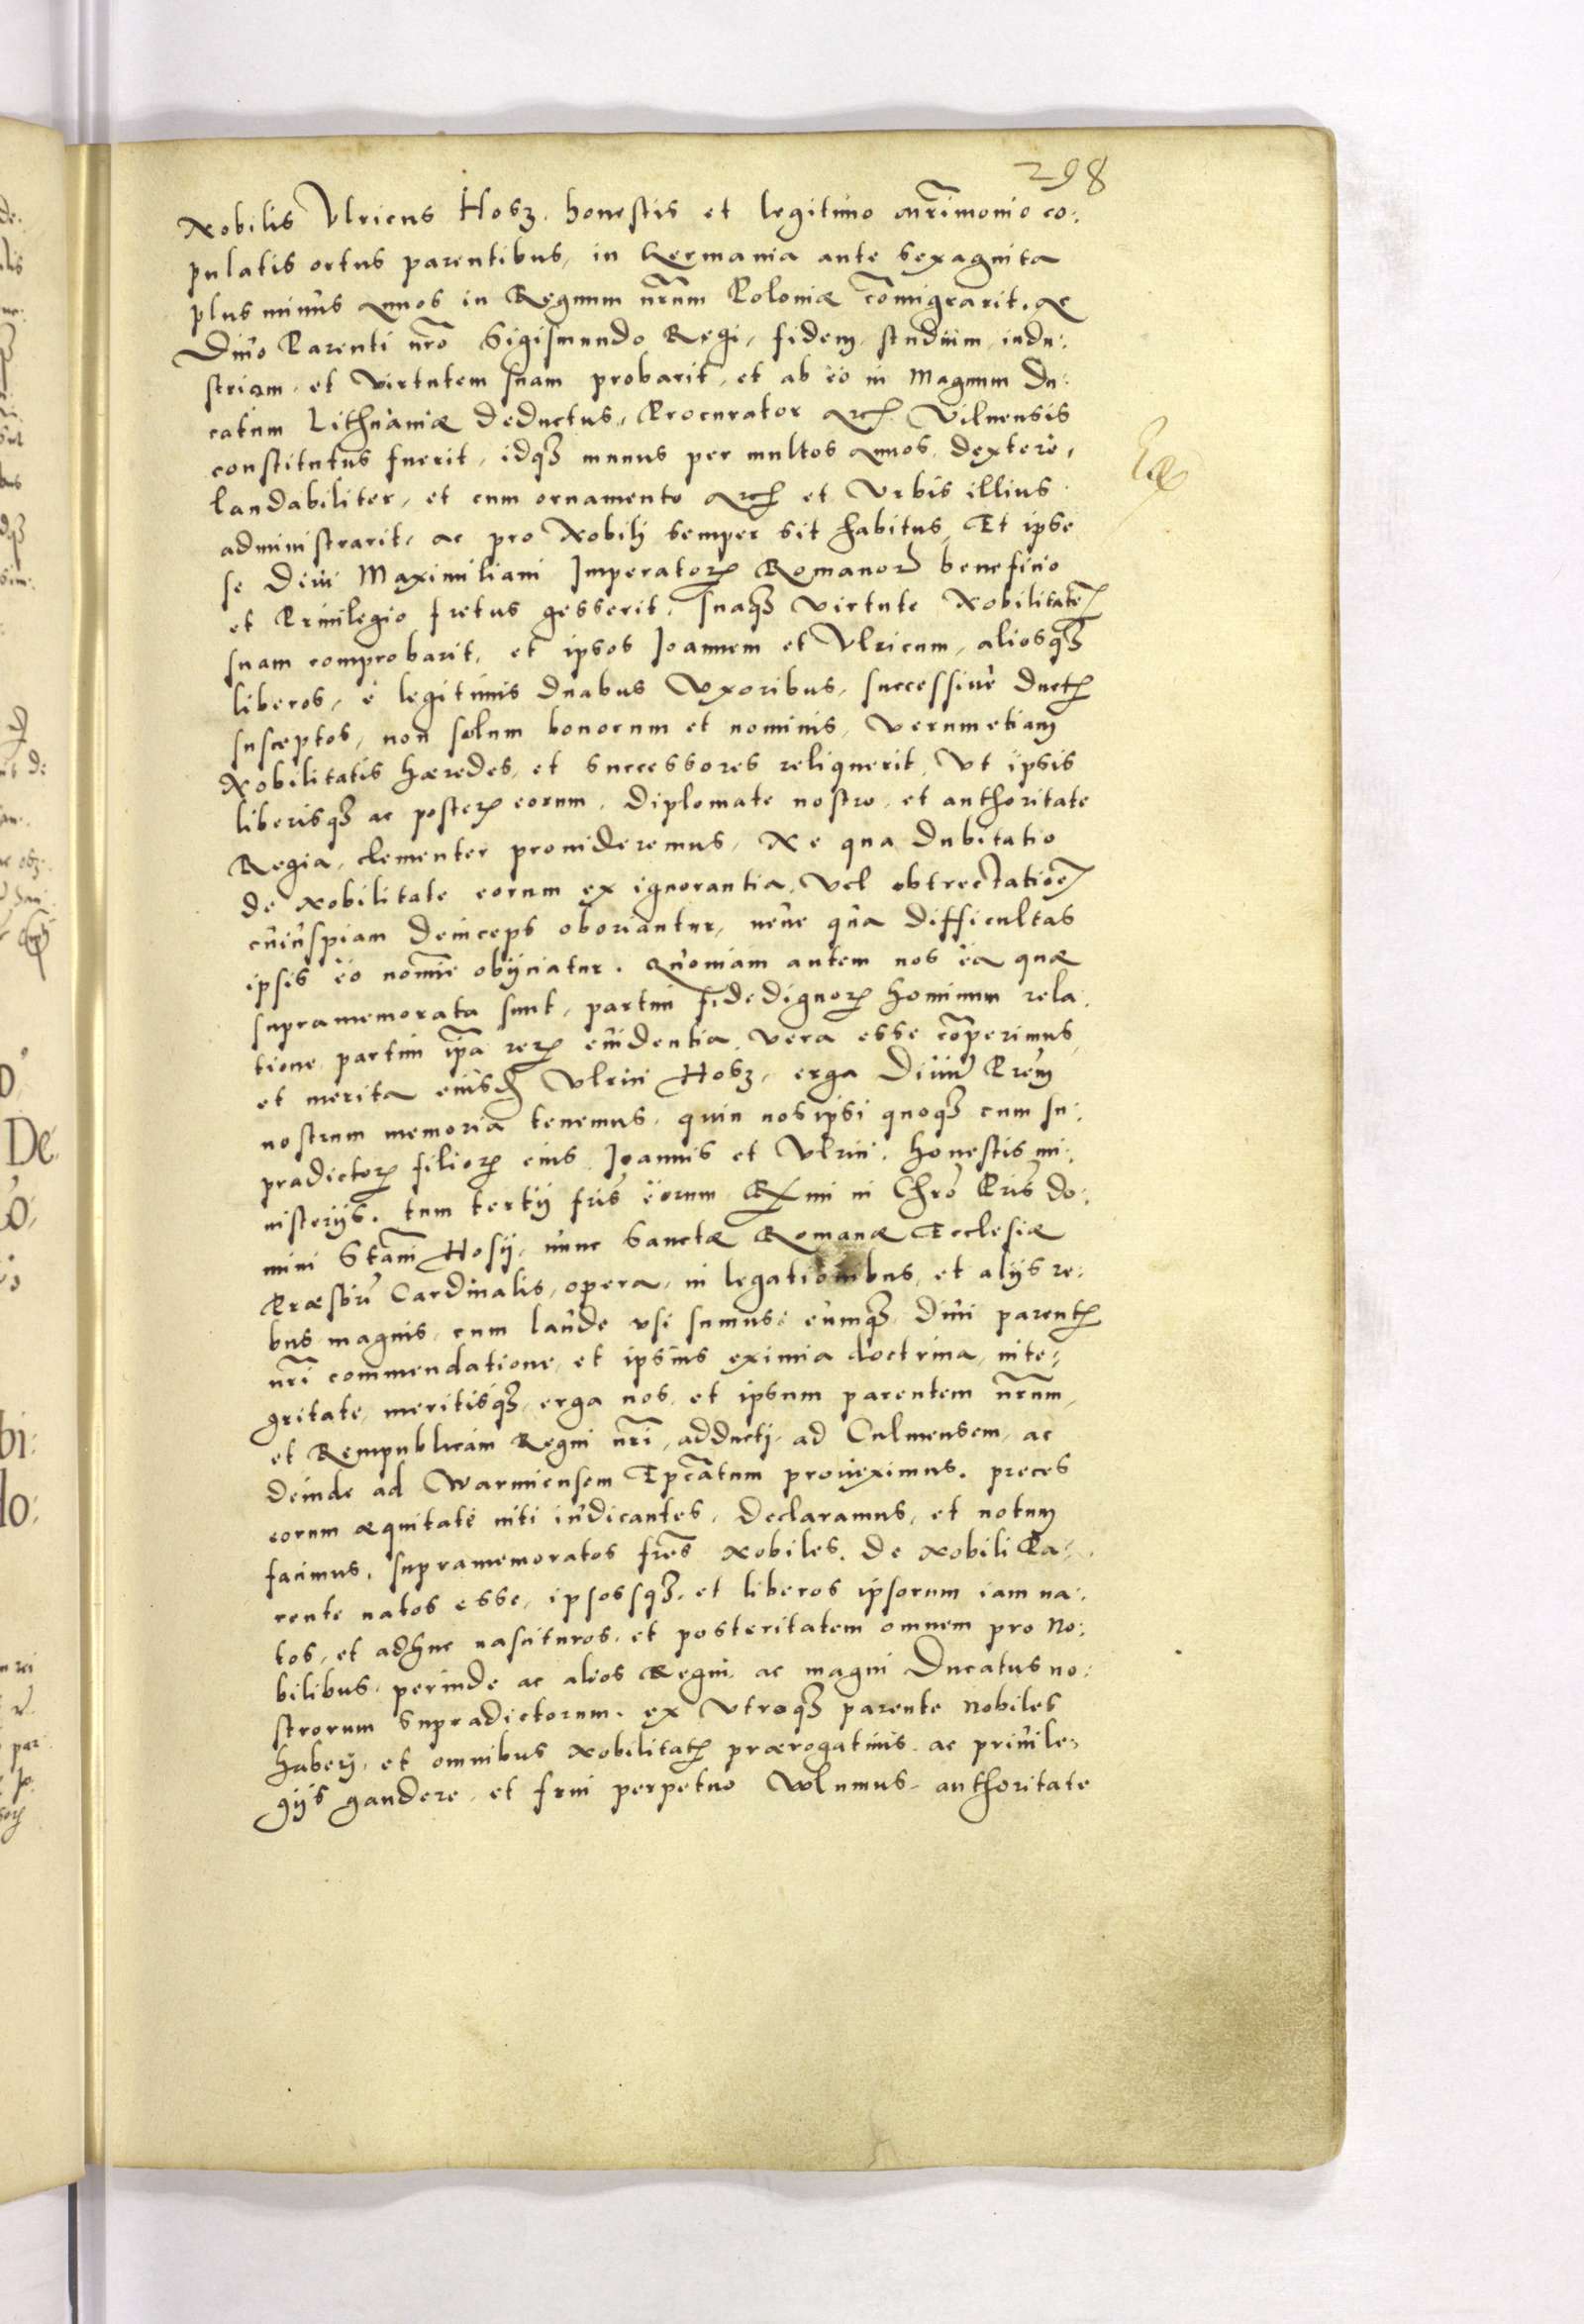 298
Nobilis Vlricus Hosz, honestis et legitimo mrimonio co:
pulatis ortus parentibus, in Germania ante sexaginta
plus minus annos in Regnum nrum Poloniæ comigrarit, ac
Divo Parenti nro Sigismundo Regi, fidem, studium, indu:
striam, et virtutem suam probarit, et ab eo in Magnum Du:
catum Lithuaniæ deductus, Procurator arc Vilnensis
constitutus fuerit, idq3 munus per multos annos dextere,
laudabiliter, et cum ornamento arc et Vrbis illius
administrarit, ac pro Nobili semper sit habitus, Et ipse
se Divi Maximiliani Imperator Romanor beneficio
et Privilegio fretus gesserit, suaq3 virtute Nobilitate
suam comprobarit, et ipsos Joannem et Vlricum, aliosq3
liberos, è legitimis duabus Vxoribus, successivè duct
susceptos, non solum bonorum et nominis, verumetiam
Nobilitatis hæredes, et successores reliquerit, Vt ipsis
liberisq3 ac poster eorum, Diplomate nostro, et authoritate
Regia, clementer provideremus, Ne qua dubitatio
de Nobilitate eorum ex ignorantia, vel obtrectatioe
cuiuspiam deinceps oboriantur, neve qua difficultas
ipsis eo nomie obijciatur. Quoniam autem nos ea quæ
supramemorata sunt, partim fidedignor hominum rela:
tione, partim ipa rer evidentia, vera esse coperimus,
et merita eiusd Vlrici Hosz, erga Divu Prem
nostrum memoria tenemus, quin nos ipsi quoq3 cum su:
pradictor filior eius, Joannis et Vlrici, honestis mi:
nisterijs, tum tertij fris eorum Rmi in Chro Pris do:
mini Stani Hosij, nunc Sanctæ Romanæ Ecclesiæ
Præsbri Cardinalis, opera, in legationibus, et alijs re:
bus magnis, cum laude vsi sumus: eumq3 divi parent
nri commendatione, et ipsius eximia doctrina, inte:
gritate, meritisq3 erga nos, et ipsum parentem nrum,
et Rempublicam Regni nri, adducti, ad Culmensem, ac
deinde ad Warmiensem Epcatum proveximus, preces
eorum æquitate niti iudicantes, declaramus, et notum
facimus, supramemoratos fres Nobiles, de Nobili Pa:
rente natos esse, ipsosq3, et liberos ipsorum iam na:
tos, et adhuc nascituros, et posteritatem omnem pro No:
bilibus, perinde ac alios Regni, ac magni Ducatus no:
strorum supradictorum, ex Vtroq3 parente nobiles
haberi, et omnibus Nobilitat prærogativis, ac privile:
gijs gaudere, et frui perpetuo volumus, authoritate